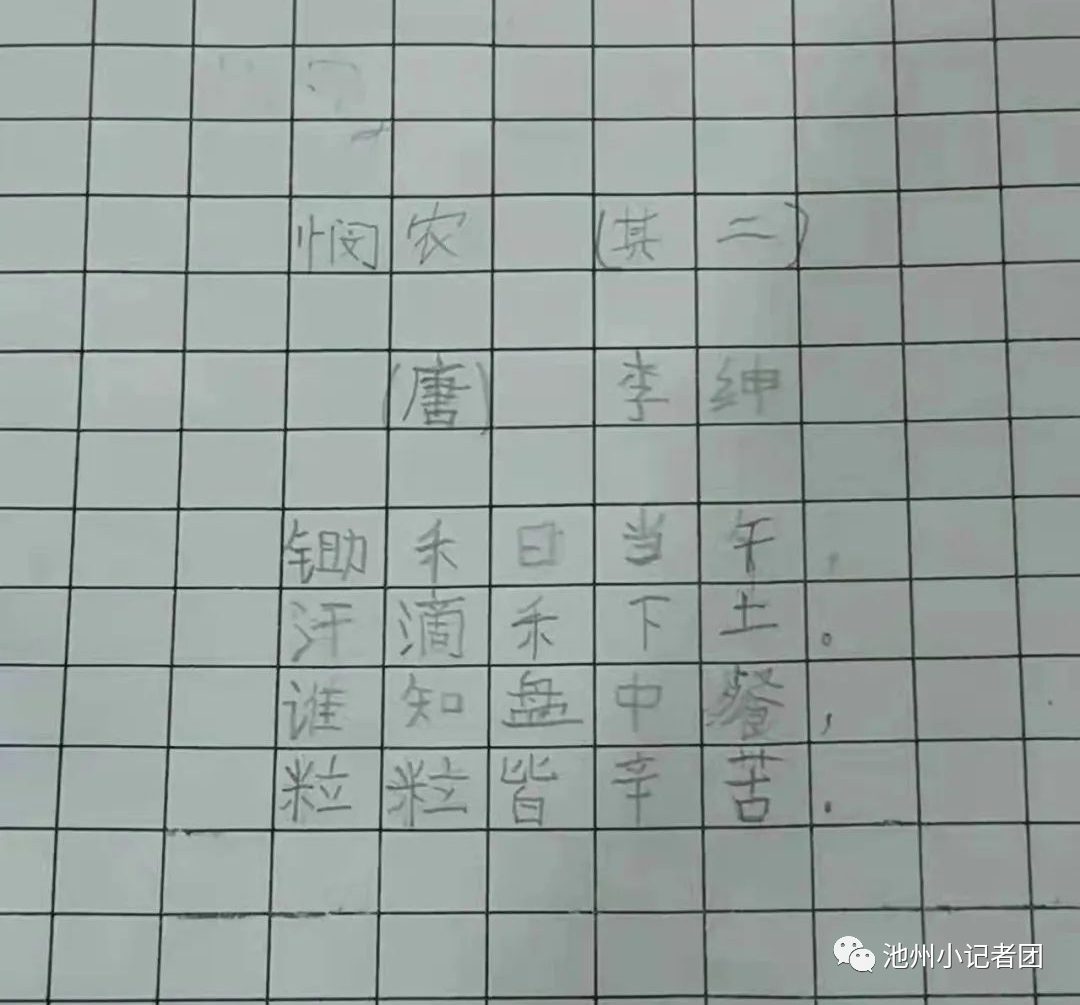 悯农 (其二)
(唐) 李绅
锄禾日当午,
汗滴禾下土。
谁知盘中餐,
粒粒皆辛苦.
池州小记者团